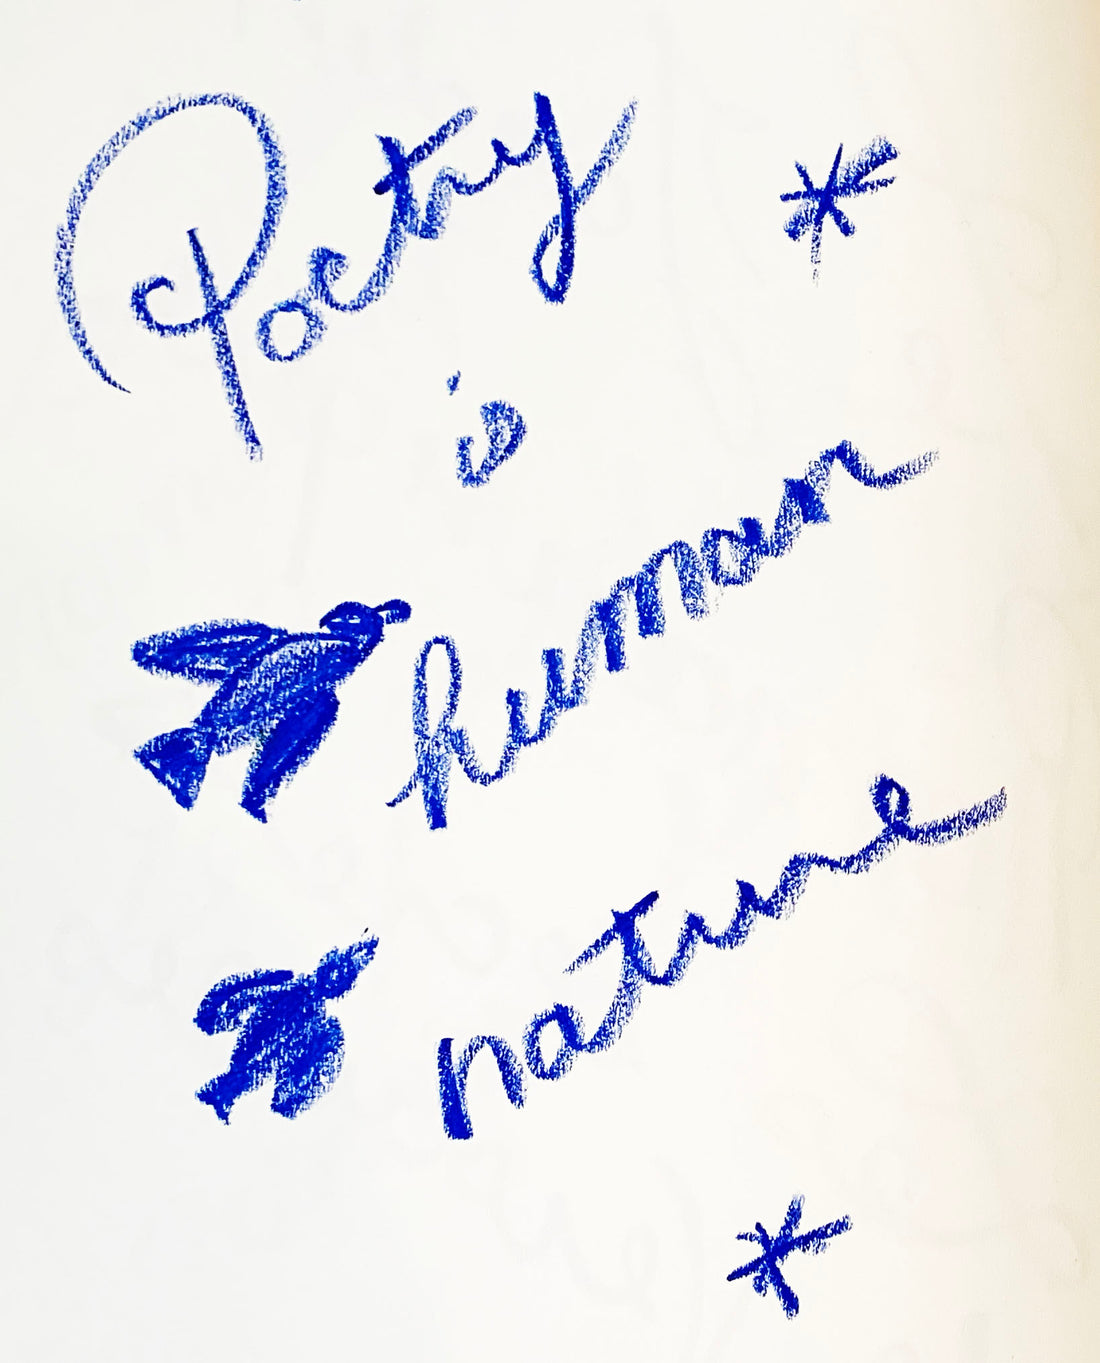 Poetry
is
human
nature